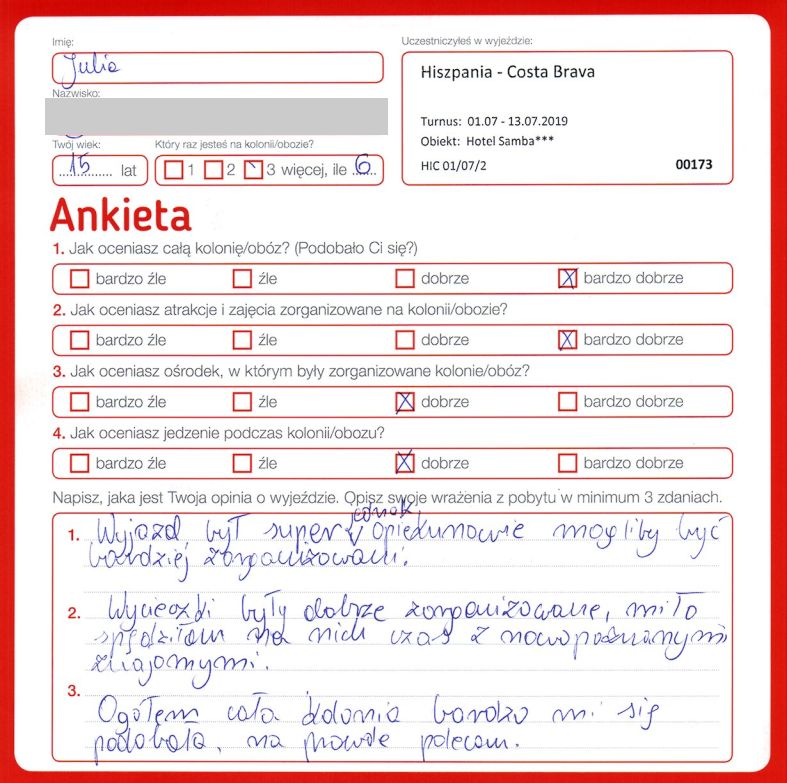 Imię:
Julia
Nazwisko:
Uczestniczyłeś w wyjeździe:
Hiszpania - Costa Brava
Turnus: 01.07 - 13.07.2019
Obiekt: Hotel Samba***
HIC 01/07/2
00173
Twój wiek:
15 lat
Który raz jesteś na kolonii/obozie?
1 2 3 więcej, ile 6
Ankieta
1. Jak oceniasz całą kolonię/obóz? (Podobało Ci się?)
bardzo źle źle dobrze X bardzo dobrze
2. Jak oceniasz atrakcje i zajęcia zorganizowane na kolonii/obozie?
bardzo źle źle dobrze X bardzo dobrze
3. Jak oceniasz ośrodek, w którym były zorganizowane kolonie/obóz?
bardzo źle źle X dobrze bardzo dobrze
4. Jak oceniasz jedzenie podczas kolonii/obozu?
bardzo źle źle X dobrze bardzo dobrze
Napisz, jaka jest Twoja opinia o wyjeździe. Opisz swoje wrażenia z pobytu w minimum 3 zdaniach.
1. Wyjazd był super, jednak opiekunowie mogliby być
bardziej zorganizowani.
2. Wycieczki były dobrze zorganizowane, miło
spędziłam na nich czas z nowopoznanymi
znajomymi.
3. Ogółem cała kolonia bardzo mi się
podobała, na prawdę polecam.